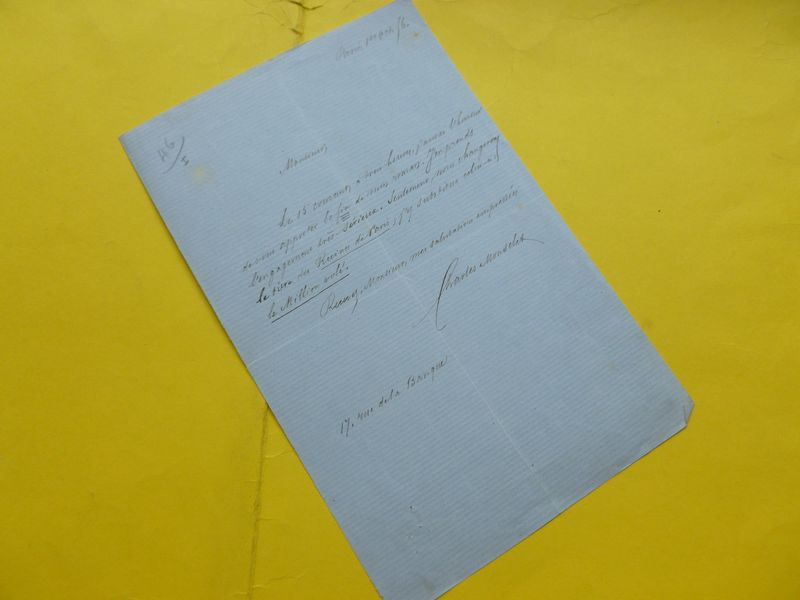 46/1
Monsieur,
Le 15 courant, à deux heures, j'aurai l'honneur
de vous apporter la fin de mon roman. J'en prends
l'engagement très-sérieux. Seulement, nous changerons
le titre des Ruines de Paris; j'y substitue celui-ci:
le Million volé.
Recevez, Monsieur, mes salutations empressées,
Charles Monselet
17, rue de la Banque